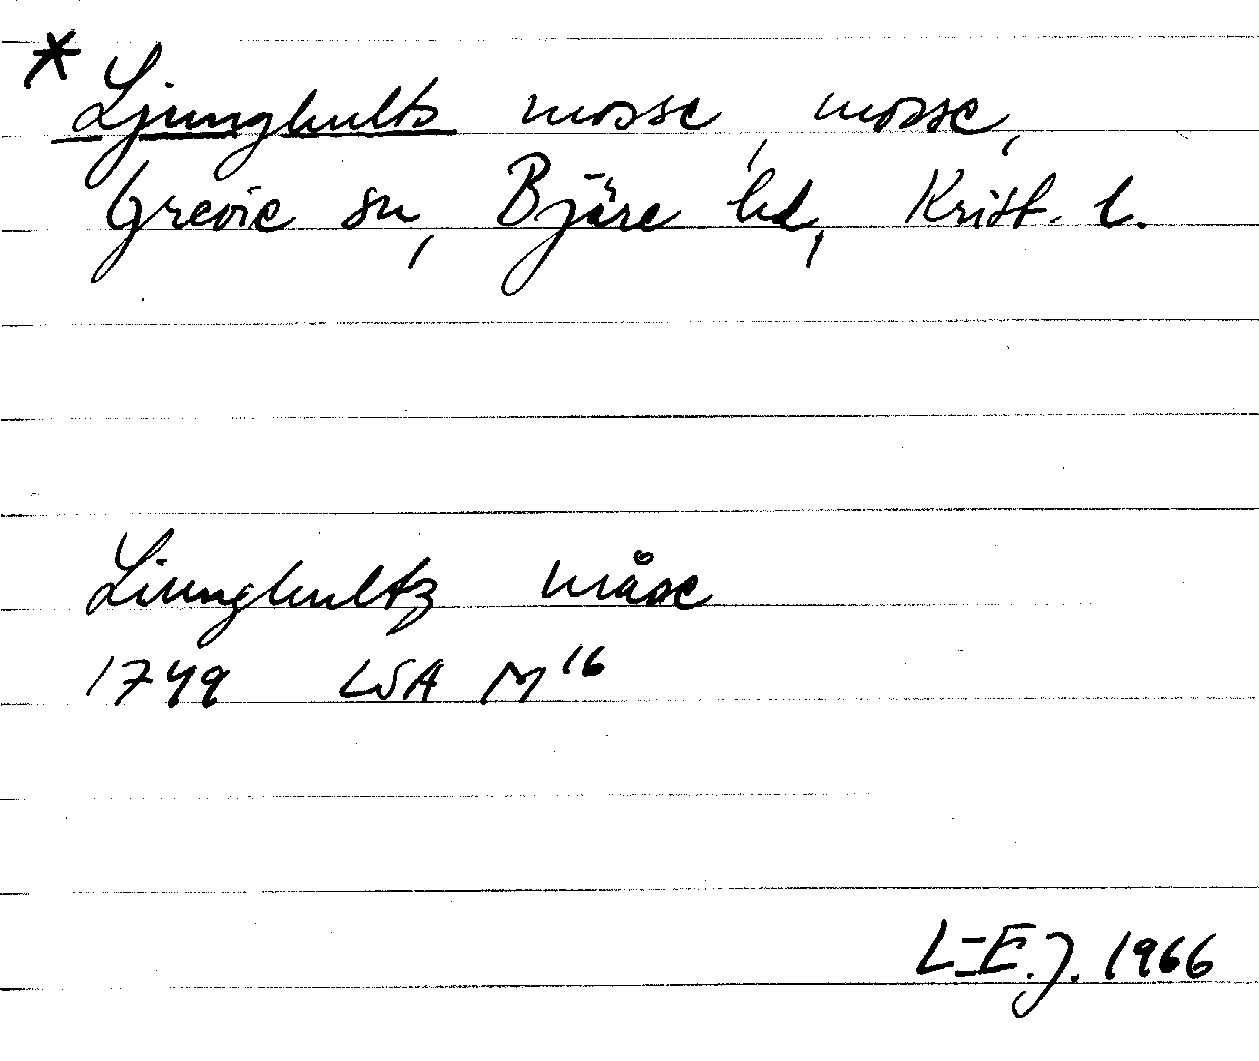 * Ljunghults mosse, mosse,
Grevie sn, Bjäre hd, Krist. l.
Liunghultz måse
1749 LSA M16
L-E.J. 1966